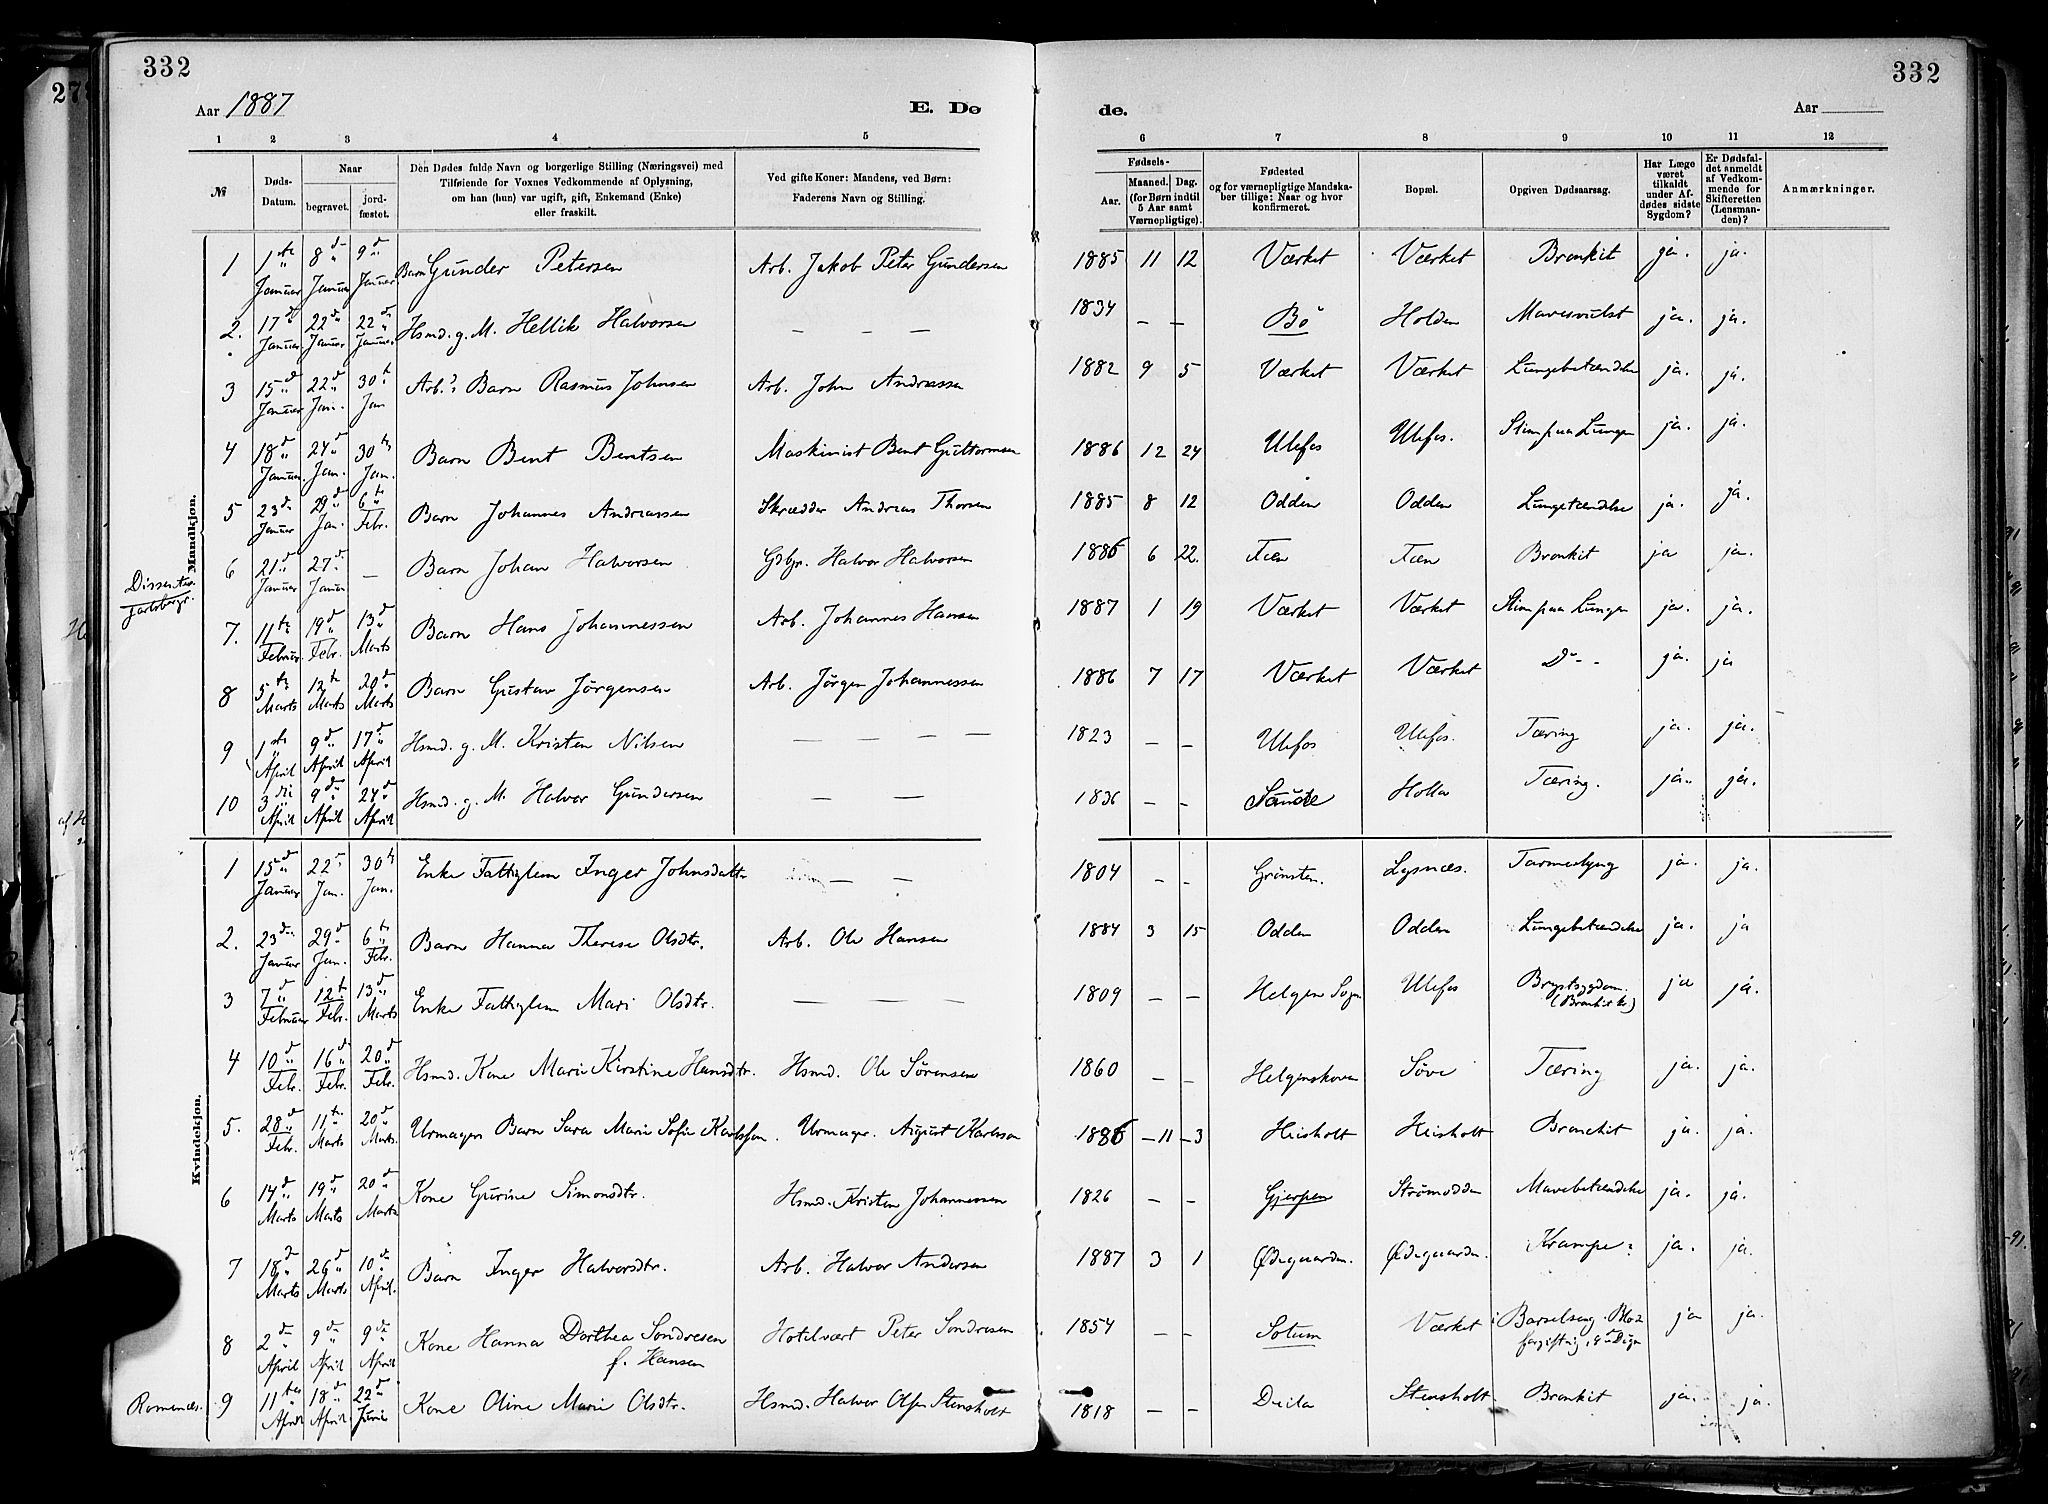 332
332
Aar 1887
E. Dø
de.
Aar
1 2 3 4 5 6 7 8 9 10 11 12
№
Døds-Datum.
Naar
begravet.
jordfæstet.
Den Dødes fulde Navn og borgerlige Stilling (Næringsvei) med
Tilføiende for Voxnes Vedkommende af Oplysning,
om han (hun) var ugift, gift, Enkemand (Enke)
eller fraskilt.
Ved gifte Koner: Mandens, ved Børn:
Faderens Navn og Stilling.
Fødsels-
Aar.
Maaned. Dag.
(for Børn indtil
5 Aar samt
Værnepligtige).
Fødested
og for værnepligtige Mandskaber tillige: Naar og hvor
konfirmeret.
Bopæl.
Opgiven Dødsaarsag.
Har Læge
været
tilkaldt
under Afdødes sidste
Sygdom?
Er Dødsfaldet anmeldt
af Vedkommende for
Skifteretten
(Lensmanden)?
Anmærkninger.
Mandkjøn.
1 1ste Januar 8d Januar 9d Januar Barn Gunder Petersen Arb. Jakob Peter Gundersen 1885 11 12 Værket Værket Bronkit ja. ja.
2. 17d Januar 22d Januar 22d Januar Hsmd. g. M. Hellik Halvorsen — — 1834 — — Bø Holden Mavesvulst ja. ja.
3 15d Januar 22d Jan. 30t Jan Arb.s Barn Rasmus Johnsen Arb. John Andreassen 1882 9 5 Værket Værket Lungebetændelse ja. ja.
4 18d Januar 24d Jan. 30te Jan. Barn Bent Bentsen Maskinist Bent Guttormsen 1886 12 24 Ulefos Ulefos. Slim paa Lungen ja. ja.
5 23d Januar 29d Jan. 6t Febr. Barn Johannes Andreassen Skrædder Andreas Thorsen 1885 8 12 Odden Odden Lungetændelse ja. ja.
Dissenter
6 21d Januar 27d Januar — Barn Johan Halvorsen Gdbr. Halvor Halvorsen 1886 6 22. Fæn Fæn Bronkit ja ja.
7. 11te Februar 19d Febr. 13d Marts Barn Hans Johannessen Arb. Johannes Hansen 1887 1 19 Værket Værket Slim paa Lungen ja. ja.
8 5te Marts 12t Marts 20d Marts Barn Gustav Jørgensen Arb. Jørgen Johannessen 1886 7 17 Værket Værket Do - - ja. ja
9 1ste April 9d April 17d April Hsmd. g. M. Kristen Nilsen — — — — 1823 — — Ulefos Ulefos. Tæring ja. ja.
10 3die April 9d April 24d April Hsmd. g. M. Halvor Gundersen — — 1836 — — Saude Holla Tæring. ja. ja.
Kvindekjøn.
1 15d Januar 22 Jan. 30te Jan. Enke Fattiglem Inger Johnsdatter — — 1804 — — Grønsten. Lysnæs. Tarmeslyng ja. ja.
2. 23de Januar 29d Jan. 6te Febr. Barn Hanna Therese Olsdtr. Arb. Ole Hansen 1884 3 15 Odden Odden Lungebetændelse ja. ja
3 7d Februar 12t Febr. 13d Marts Enke Fattiglem Mari Olsdtr. — — 1809 — — Helgen Sogn Ulefos Brystsygdom. (Bronkit &c) ja ja.
4 10d Febr. 16d Febr. 20d Febr. Hsmd. Kone Marie Kirstine Hansdtr. Hsmd. Ole Sørensen 1860 — — Helgenskoven Søve Tæring ja. ja.
5. 28d Febr. 11te Marts 20d Marts. Urmager Barn Sara Marie Sofie Karlsson. Urmager. August Karlsson 1886 — 11 — 3 Heisholt Heisholt Bronckit ja. ja.
6 14d Marts 19d Marts 20d Marts Kone Gurine Simonsdtr. Hsmd. Kristen Johannessen 1826 — — Gjerpen Strømodden Mavebetændelse ja. ja.
7 18d Marts 26d Marts 10d April. Barn Inger Halvorsdtr. Arb. Halvor Andersen 1887 3 1 Ødegaarden. Ødegaarden. Krampe: ja. ja.
8 2d April 9d April 9de April Kone Hanna Dorthea Sondresen f. Hansen Hotelvært Peter Sondresen 1854 — — Solum Værket i Barselseng. Blodforgiftning ja ja.
Romenæs.
9 11te April 18d April 22d Juni Kone Oline Marie Olsdtr. Hsmd. Halvor Olsen Stensholt 1818 — — Deila Stensholt Bronkit ja. ja.